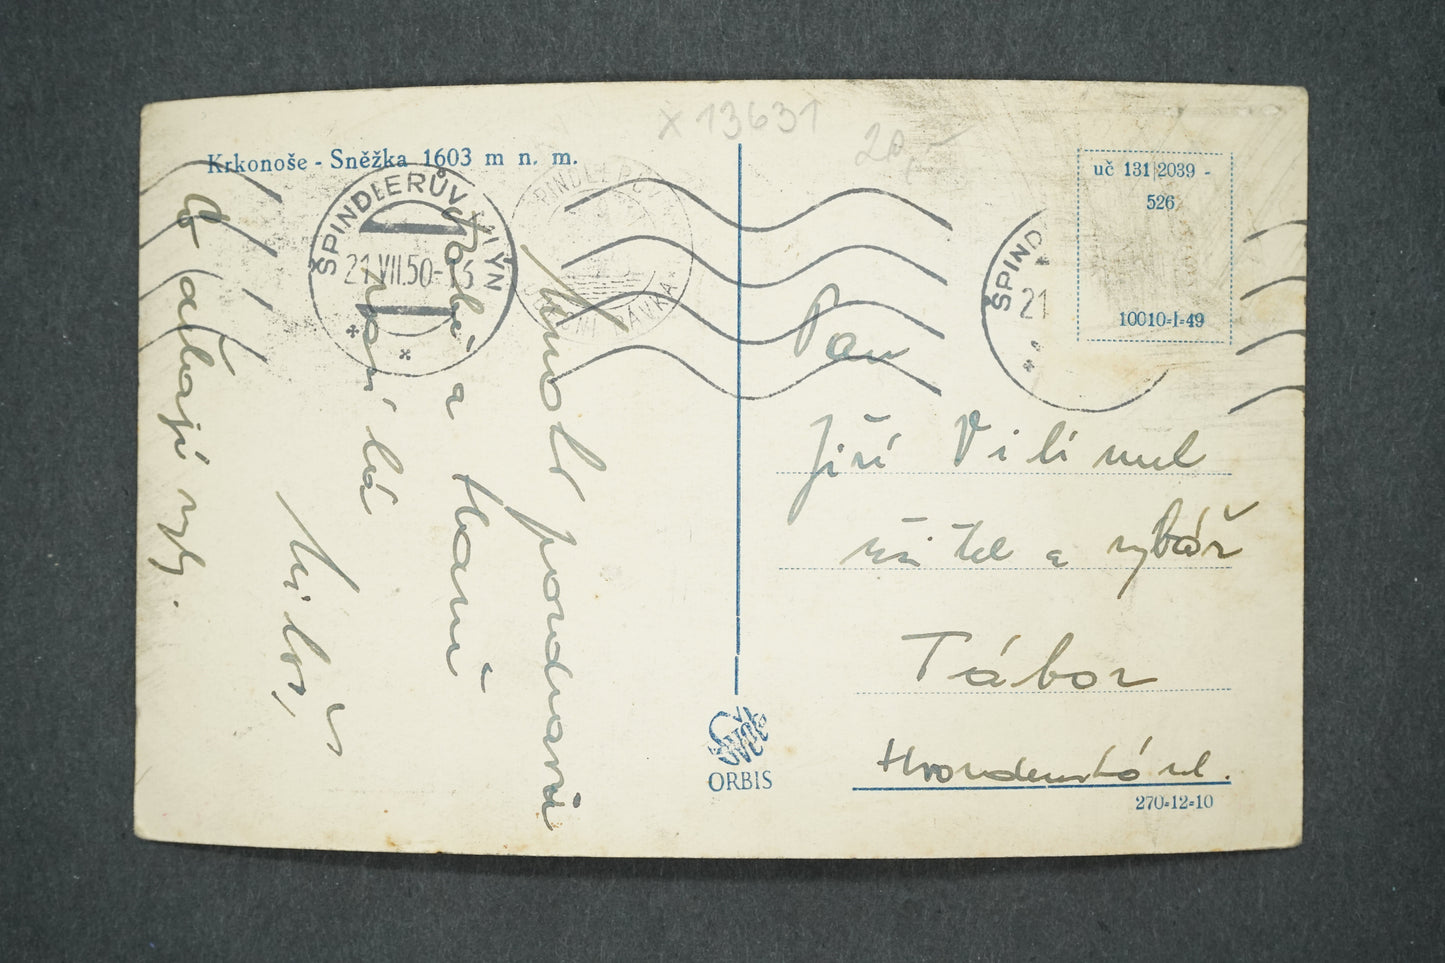 x 13631
20,-
Krkonoše - Sněžka 1603 m n. m.
ŠPINDLERŮV MLÝN
21.VII.50-13
ŠPIND
21
uč 131 2039 -
526
10010-I-49
Mnoho pozdravů
Tobě a Haní
posílá
Miloš,
A ať berou ryby.
Pan
Jiří Vilímek
učitel a rybář
Tábor
ul.
ORBIS
270-12-10